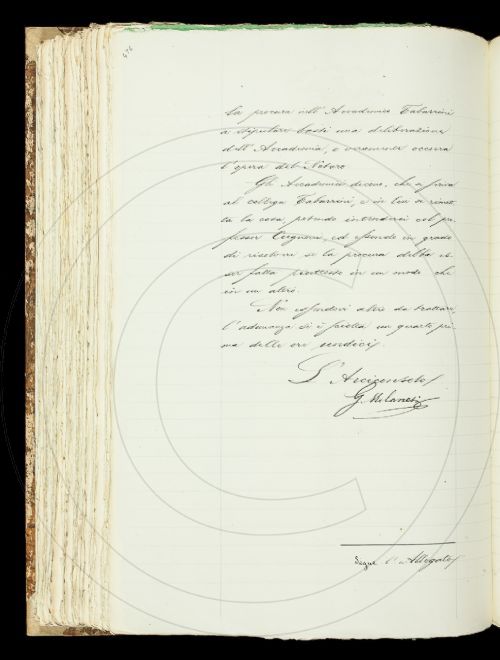 476
la procura nell' Accademico Tabarrini
a stipulare basti una deliberazione
dell' Accademia, o veramente occorra
l'opera del Notaro.
Gli Accademici dicono, che si scriva
al collega Tabarrini, e in lui si rimet-
ta la cosa, potendo intendersi col pro-
fessor ed essendo in grado
di risolvere se la procura debba es-
ser fatta piuttosto in un modo che
in un altro.
Non essendovi altro da trattare,
l'adunanza si è sciolta un quarto pri-
ma delle ore undici.
L' Arciconsolo
G. Milanesi
Segue l' Allegato